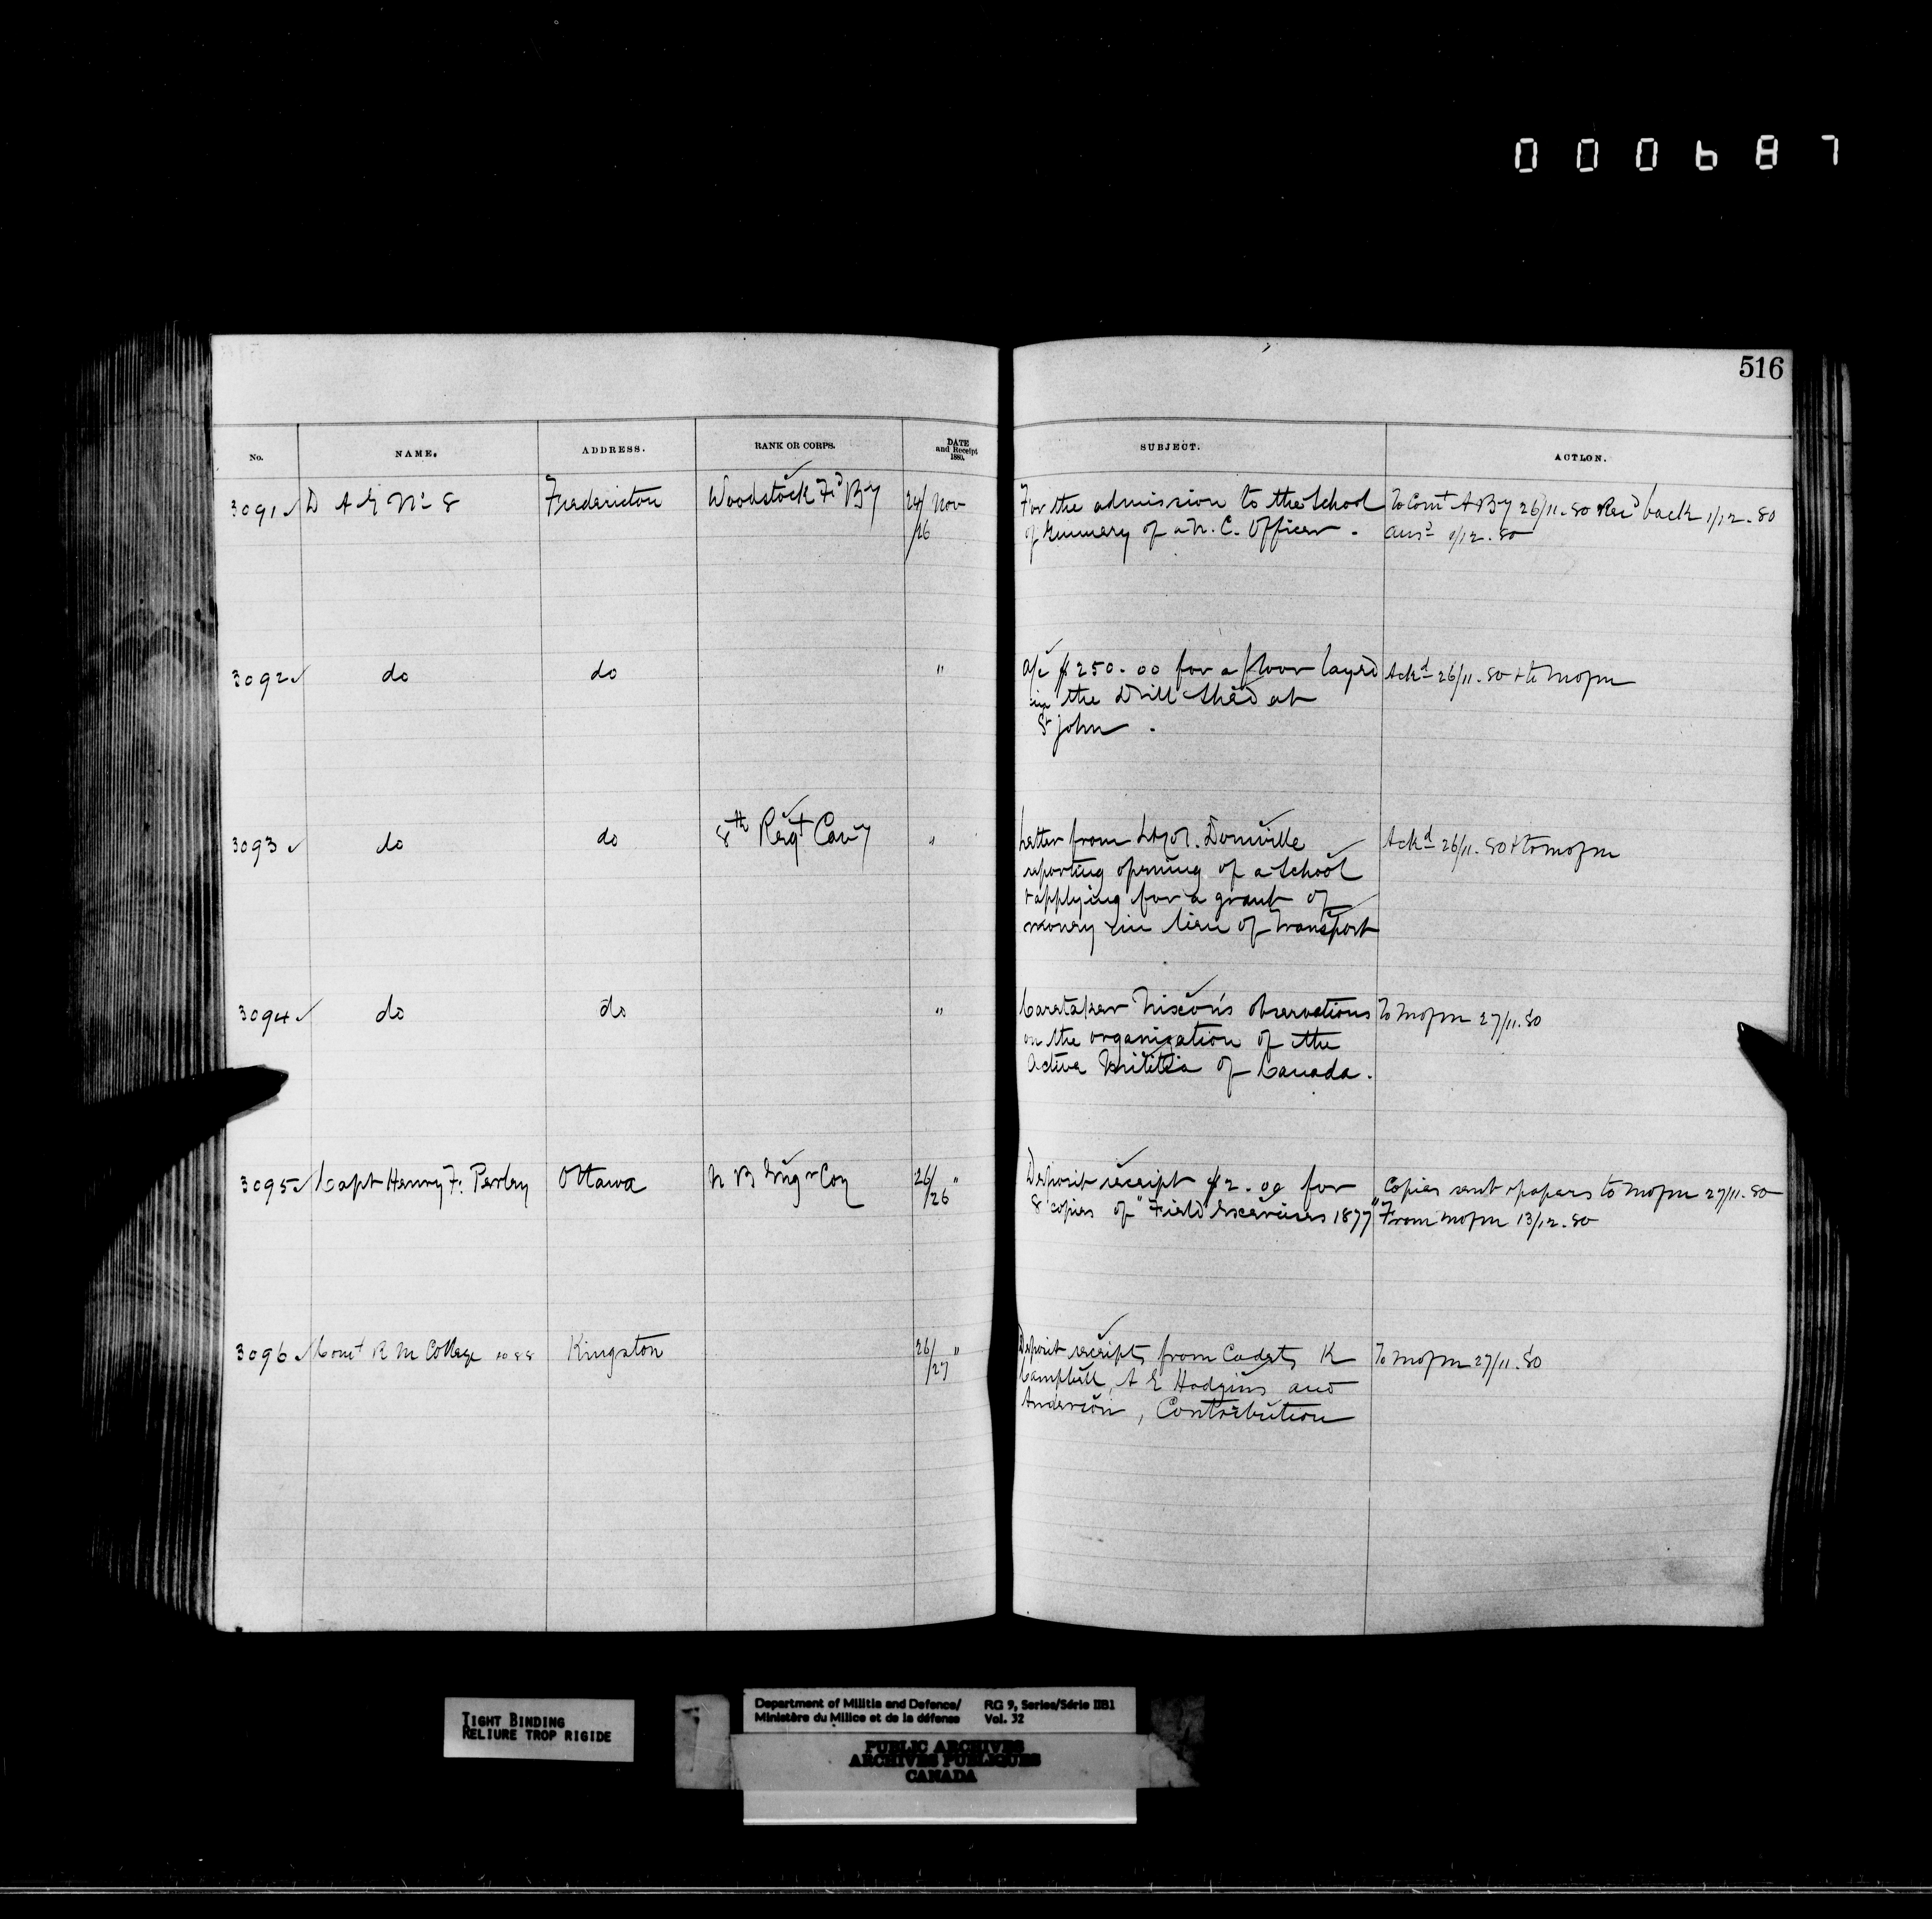 000687
516
No. NAME. ADDRESS. RANK OR CORPS. DATE and Receipt 1880. SUBJECT. ACTION.
3091 D A G No 8 Fredericton Woodstock Fd By 24/26 Nov For the admission to the School To Comt A By 26/11.80 Recd back 1/12.80
of Gunnery of a N. C. Officer. Ansd 1/12.80
3092 do do " a/c $250.00 for a floor layed Ackd 26/11.80 & to MofM
in the Drill Shed at
St John.
3093 do do 8th Regt Cavy " Letter from Lt Col. Domville Ackd 26/11.80 & to MofM
reporting opening of a School
& applying for a grant of
money in lieu of transport
3094 do do " Caretaker Nixon's observations To MofM 27/11.80
on the organization of the
Active Militia of Canada.
3095 Capt Henry F. Perley Ottawa N B Engr Coy 26/26 " Deposit receipt $2.00 for Copies sent & papers to MofM 27/11.80
8 copies of "Field Exercises 1877" From MofM 13/12.80
3096 Comt R M College Kingston 26/27 " Deposit receipts from Cadets K To MofM 27/11.80
Campbell, A E Hodgins and
Anderson, Contribution
TIGHT BINDING
RELIURE TROP RIGIDE
Department of Militia and Defence/ RG 9, Series/Série IIB1
Ministère du Milice et de la défense Vol. 32
PUBLIC ARCHIVES
ARCHIVES PUBLIQUES
CANADA